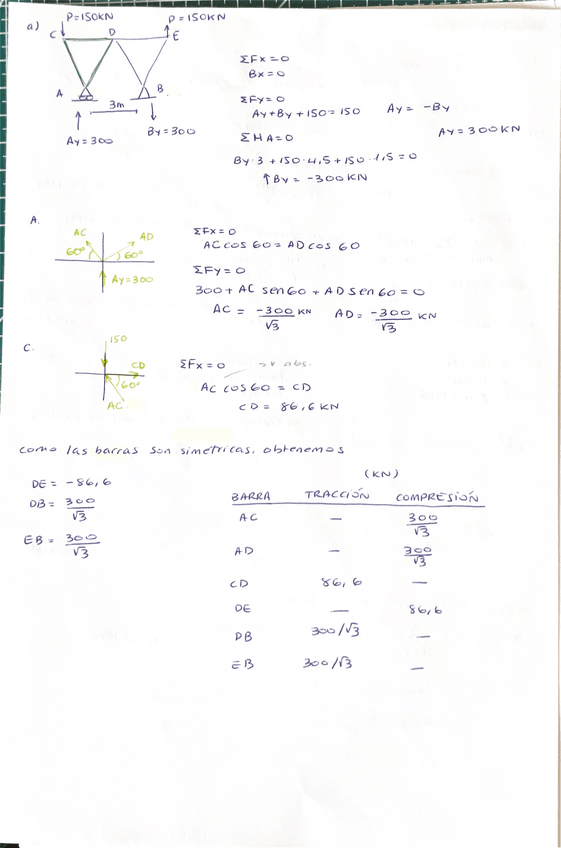 a)
P=150KN P=150KN
C D E
A B
3m
Ay=300 By=300
ΣFx=0
Bx=0
ΣFy=0
Ay+By+150=150 Ay= -By
ΣMA=0 Ay=300KN
By·3+150·4,5+150·1,5=0
↑By= -300KN
A.
AC AD
60º 60º
Ay=300
ΣFx=0
AC cos 60=AD cos 60
ΣFy=0
300+AC sen60+AD sen60=0
AC = -300/√3 KN AD= -300/√3 KN
C.
150
CD
60º
AC
ΣFx=0 abs.
AC cos60=CD
CD= 86,6KN
como las barras son simetricas, obtenemos
DE= -86,6
DB= 300/√3
EB= 300/√3
(KN)
BARRA TRACCIÓN COMPRESIÓN
AC — 300/√3
AD — 300/√3
CD 86,6 —
DE — 86,6
DB 300/√3 —
EB 300/√3 —